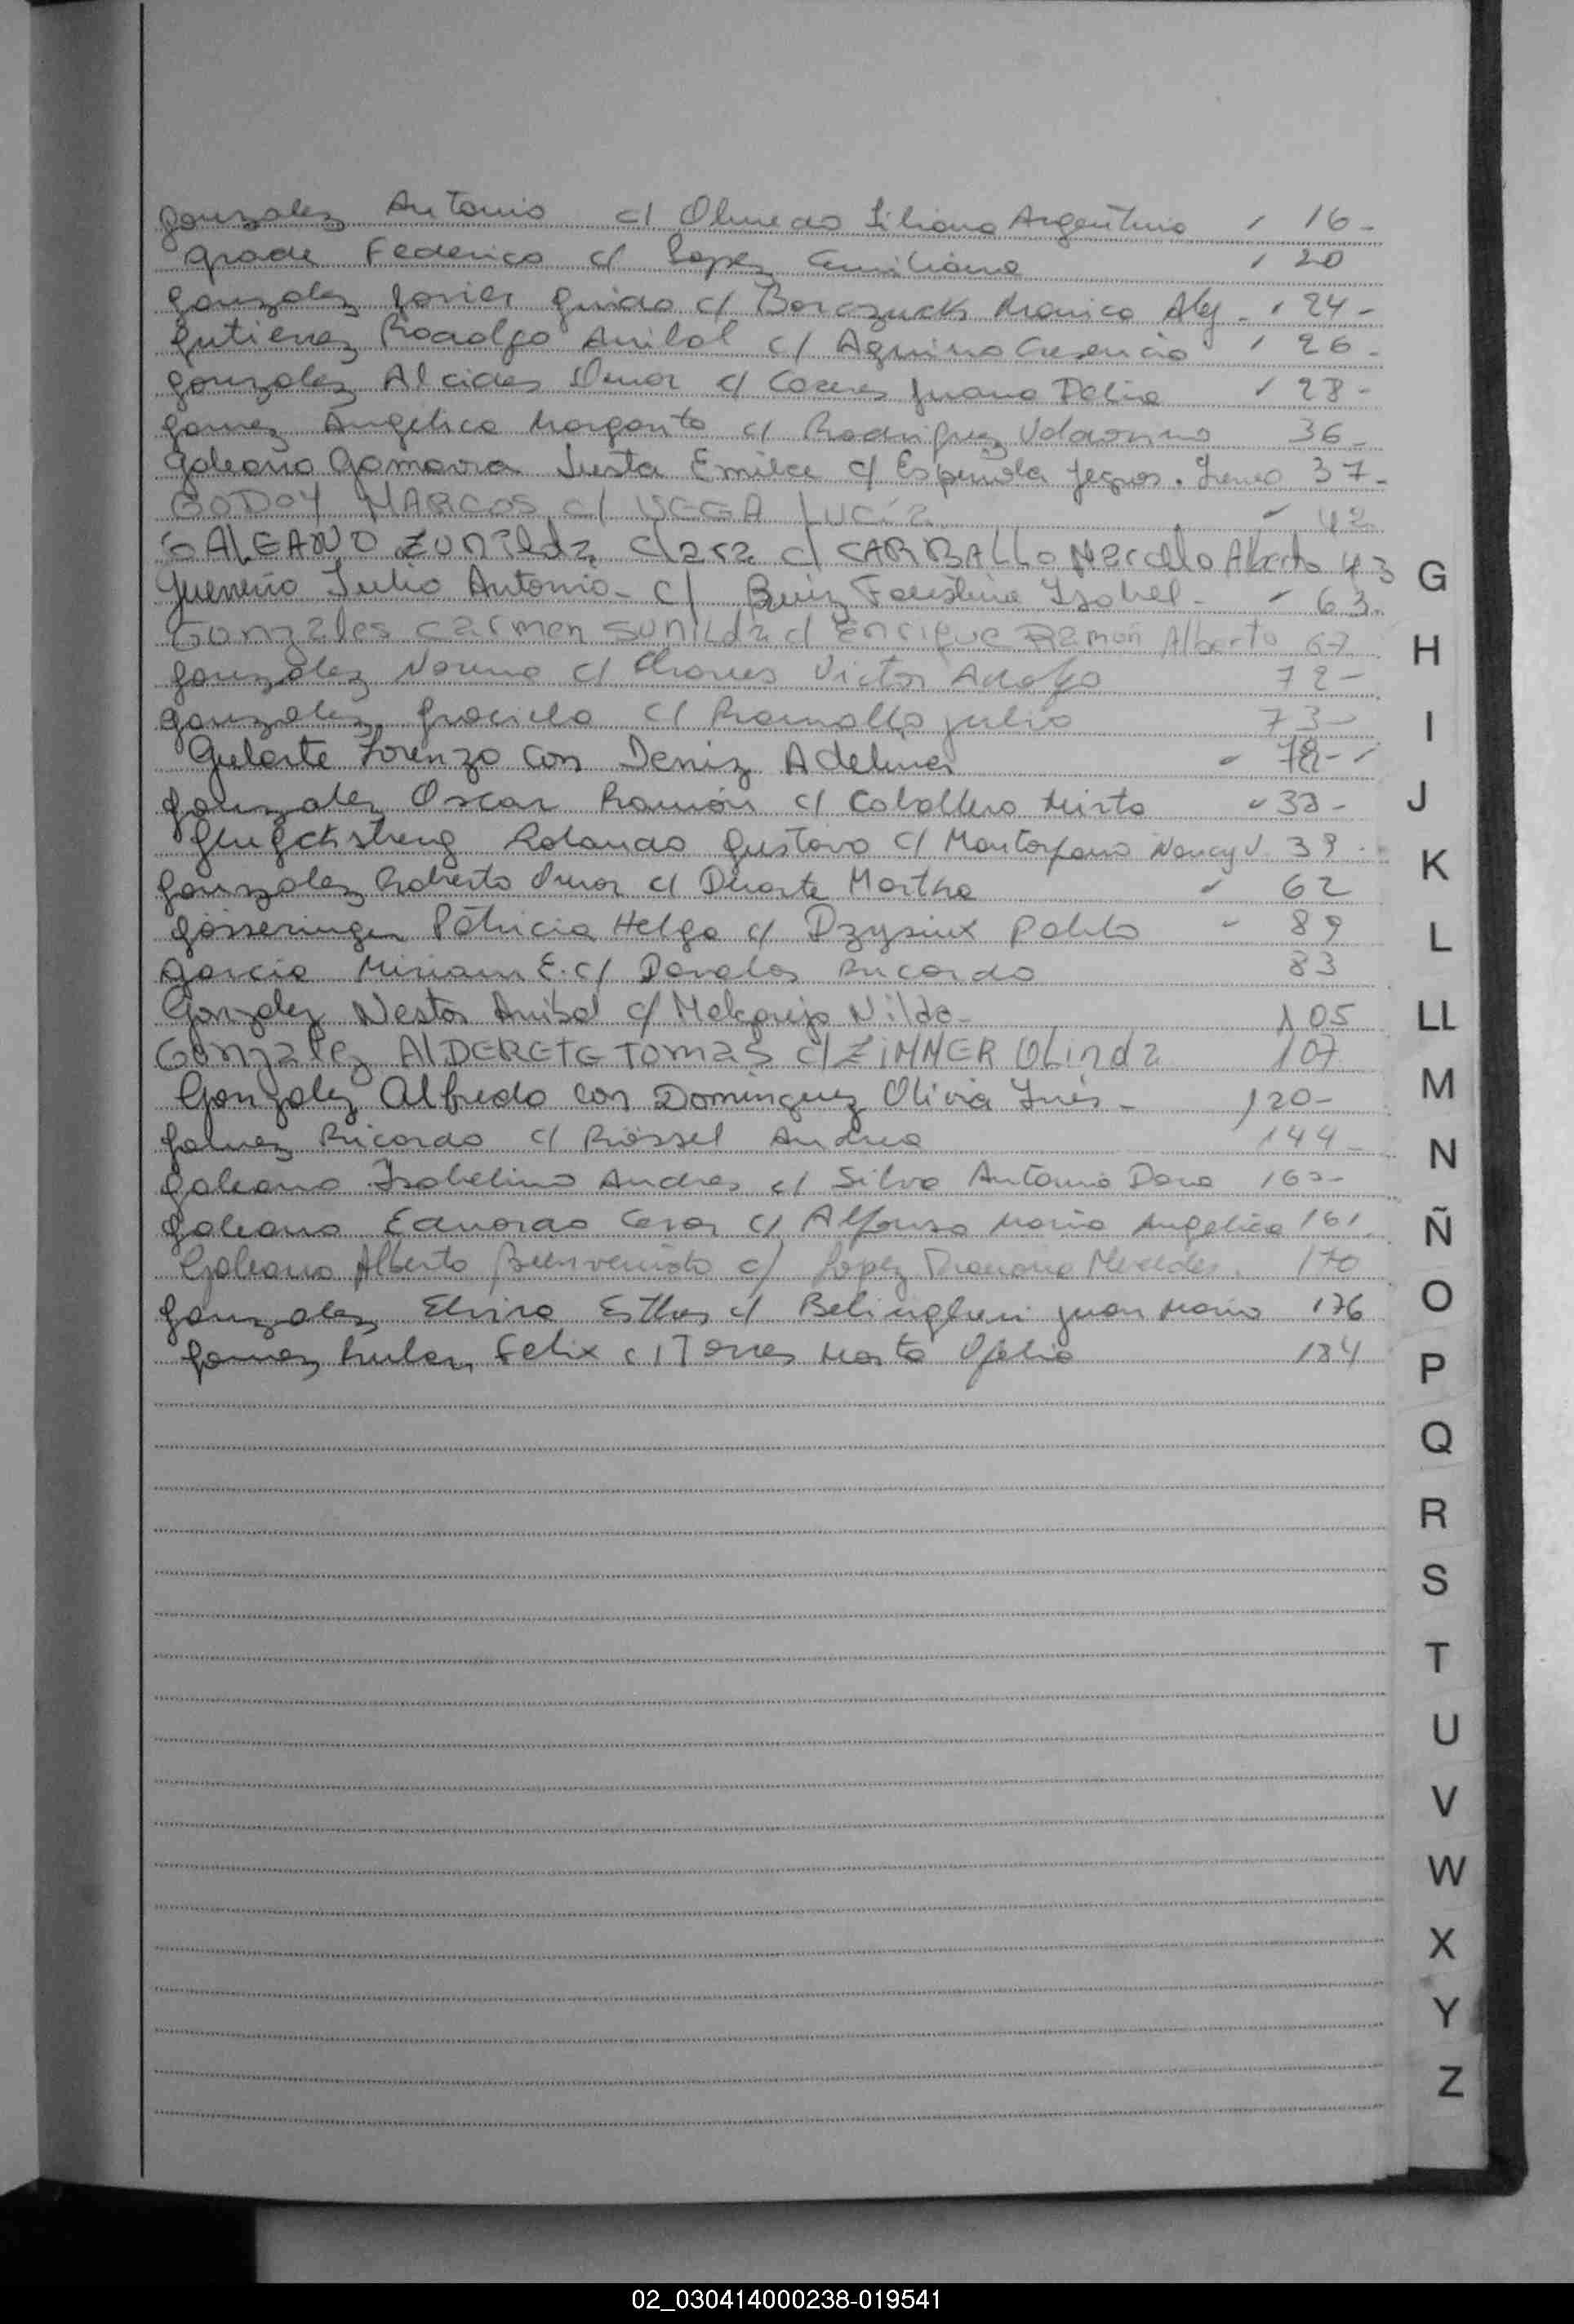 Gonzalez Antonio c/ Olmedo Liliana Argentina 16-
Grade Federico c/ Lopez Emiliana 20
Gonzalez Javier Guido c/ Borczuck Monica Alej. 24-
Gutierrez Rodolfo Anibal c/ Aquino Cresencia 26-
Gonzalez Alcides Omar c/ Caceres Juana Delia 28-
Gomez Angelica Margarita c/ Rodriguez 36-
Galeano Gamarra Justa Emilce c/ Espinola Jesus. Ireneo 37-
GODOY MARCOS c/ VEGA LUCía 42
GALEANO ZUNilda Clara c/ CARBALLO Marcelo Alberto 43
Guerreño Julio Antonio- c/ Ruiz Faustina Isabel- 63-
Gonzales Carmen Sunilda c/ Enrique Ramón Alberto 67
Gonzalez Norma c/ Chaves Victor Adolfo 72-
Gonzalez Graciela c/ Ramallo Julio 73-
Gularte Lorenzo con Deniz Adelina
Gonzalez Oscar Ramón c/ Caballero Mirta 33-
Rolando Gustavo c/ Montorfano Nancy V. 39-
Gonzalez Roberto Omar c/ Duarte Martha 62
Gösseringer Patricia Helga c/ Pablo 89
Garcia Miriam E. c/ Davalos Ricardo 83
Gonzalez Nestor Anibal c/ Melgarejo Nilda- 105
Gonzalez AlDERETE Tomas c/ ZiMMER Olinda 107
Gonzalez Alfredo con Dominguez Olivia Inés- 120-
Galvez Ricardo c/ Rössel Andrea 144-
Galeano Isabelino Andres c/ Silva Antonia Dora 160-
Galeano Eduardo Cesar c/ Alfonso Maria Angelica 161
Galeano Alberto Bienvenido c/ Lopez Mercedes. 170
Gonzalez Elvira Esther c/ Belinghieri Juan Mario 176
Gomez Felix c/ Torres Marta Ofelia 184
G
H
I
J
K
L
LL
M
N
Ñ
O
P
Q
R
S
T
U
V
W
X
Y
Z
02_030414000238-019541